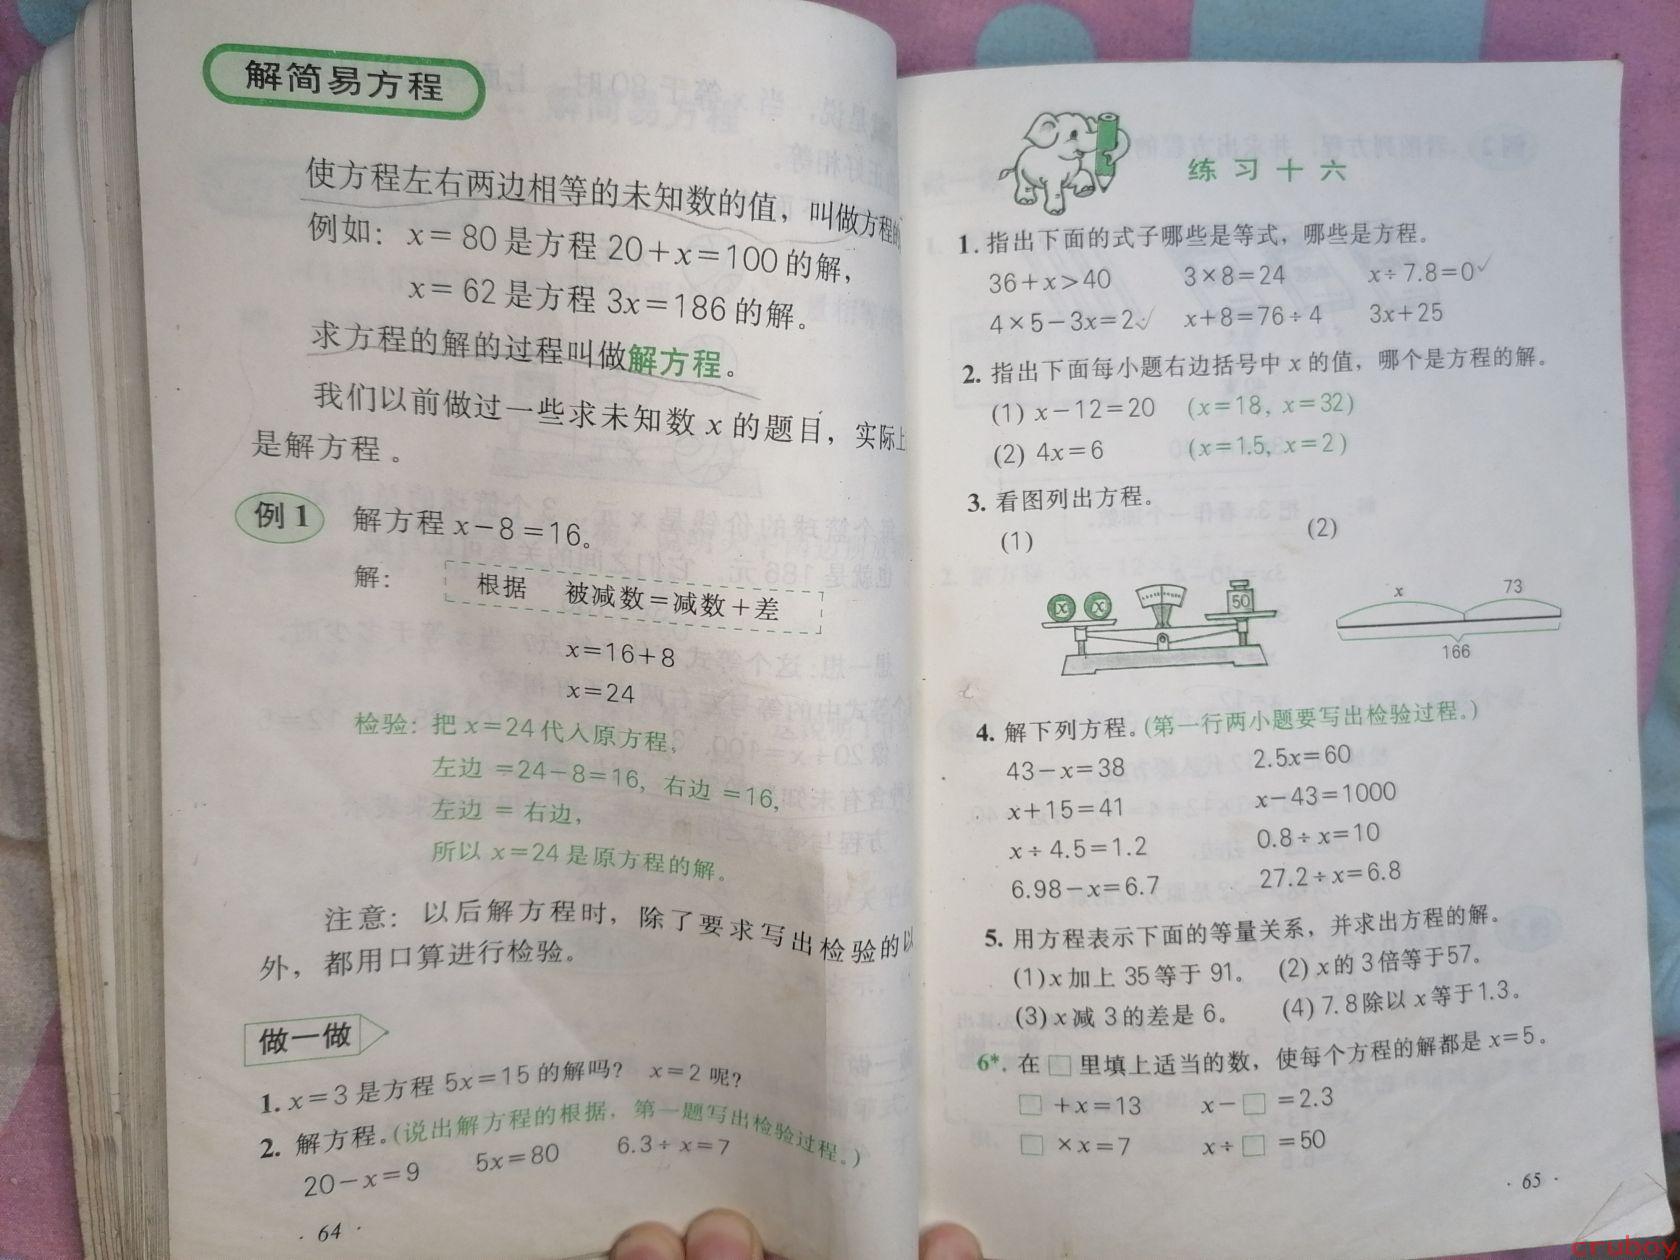 解简易方程
使方程左右两边相等的未知数的值，叫做方程的
例如：x=80是方程20+x=100的解，
x=62是方程3x=186的解。
求方程的解的过程叫做解方程。
我们以前做过一些求未知数x的题目，实际上
是解方程。
例1 解方程x-8=16。
解：
根据 被减数=减数+差
x=16+8
x=24
检验：把x=24代入原方程，
左边=24-8=16，右边=16，
左边=右边，
所以x=24是原方程的解。
注意：以后解方程时，除了要求写出检验的以
外，都用口算进行检验。
做一做
1. x=3是方程5x=15的解吗？ x=2呢？
2. 解方程。(说出解方程的根据，第一题写出检验过程。)
20-x=9 5x=80 6.3÷x=7
· 64 ·
练习十六
1. 指出下面的式子哪些是等式，哪些是方程。
36+x>40 3×8=24 x÷7.8=0✓
4×5-3x=2✓ x+8=76÷4 3x+25
2. 指出下面每小题右边括号中x的值，哪个是方程的解。
(1) x-12=20 (x=18, x=32)
(2) 4x=6 (x=1.5, x=2)
3. 看图列出方程。
(1) (2)
x x 50
x 73
166
4. 解下列方程。(第一行两小题要写出检验过程。)
43-x=38 2.5x=60
x+15=41 x-43=1000
x÷4.5=1.2 0.8÷x=10
6.98-x=6.7 27.2÷x=6.8
5. 用方程表示下面的等量关系，并求出方程的解。
(1)x加上35等于91。 (2)x的3倍等于57。
(3)x减3的差是6。 (4)7.8除以x等于1.3。
6*. 在□里填上适当的数，使每个方程的解都是x=5。
□+x=13 x-□=2.3
□×x=7 x÷□=50
· 65 ·
cruboy